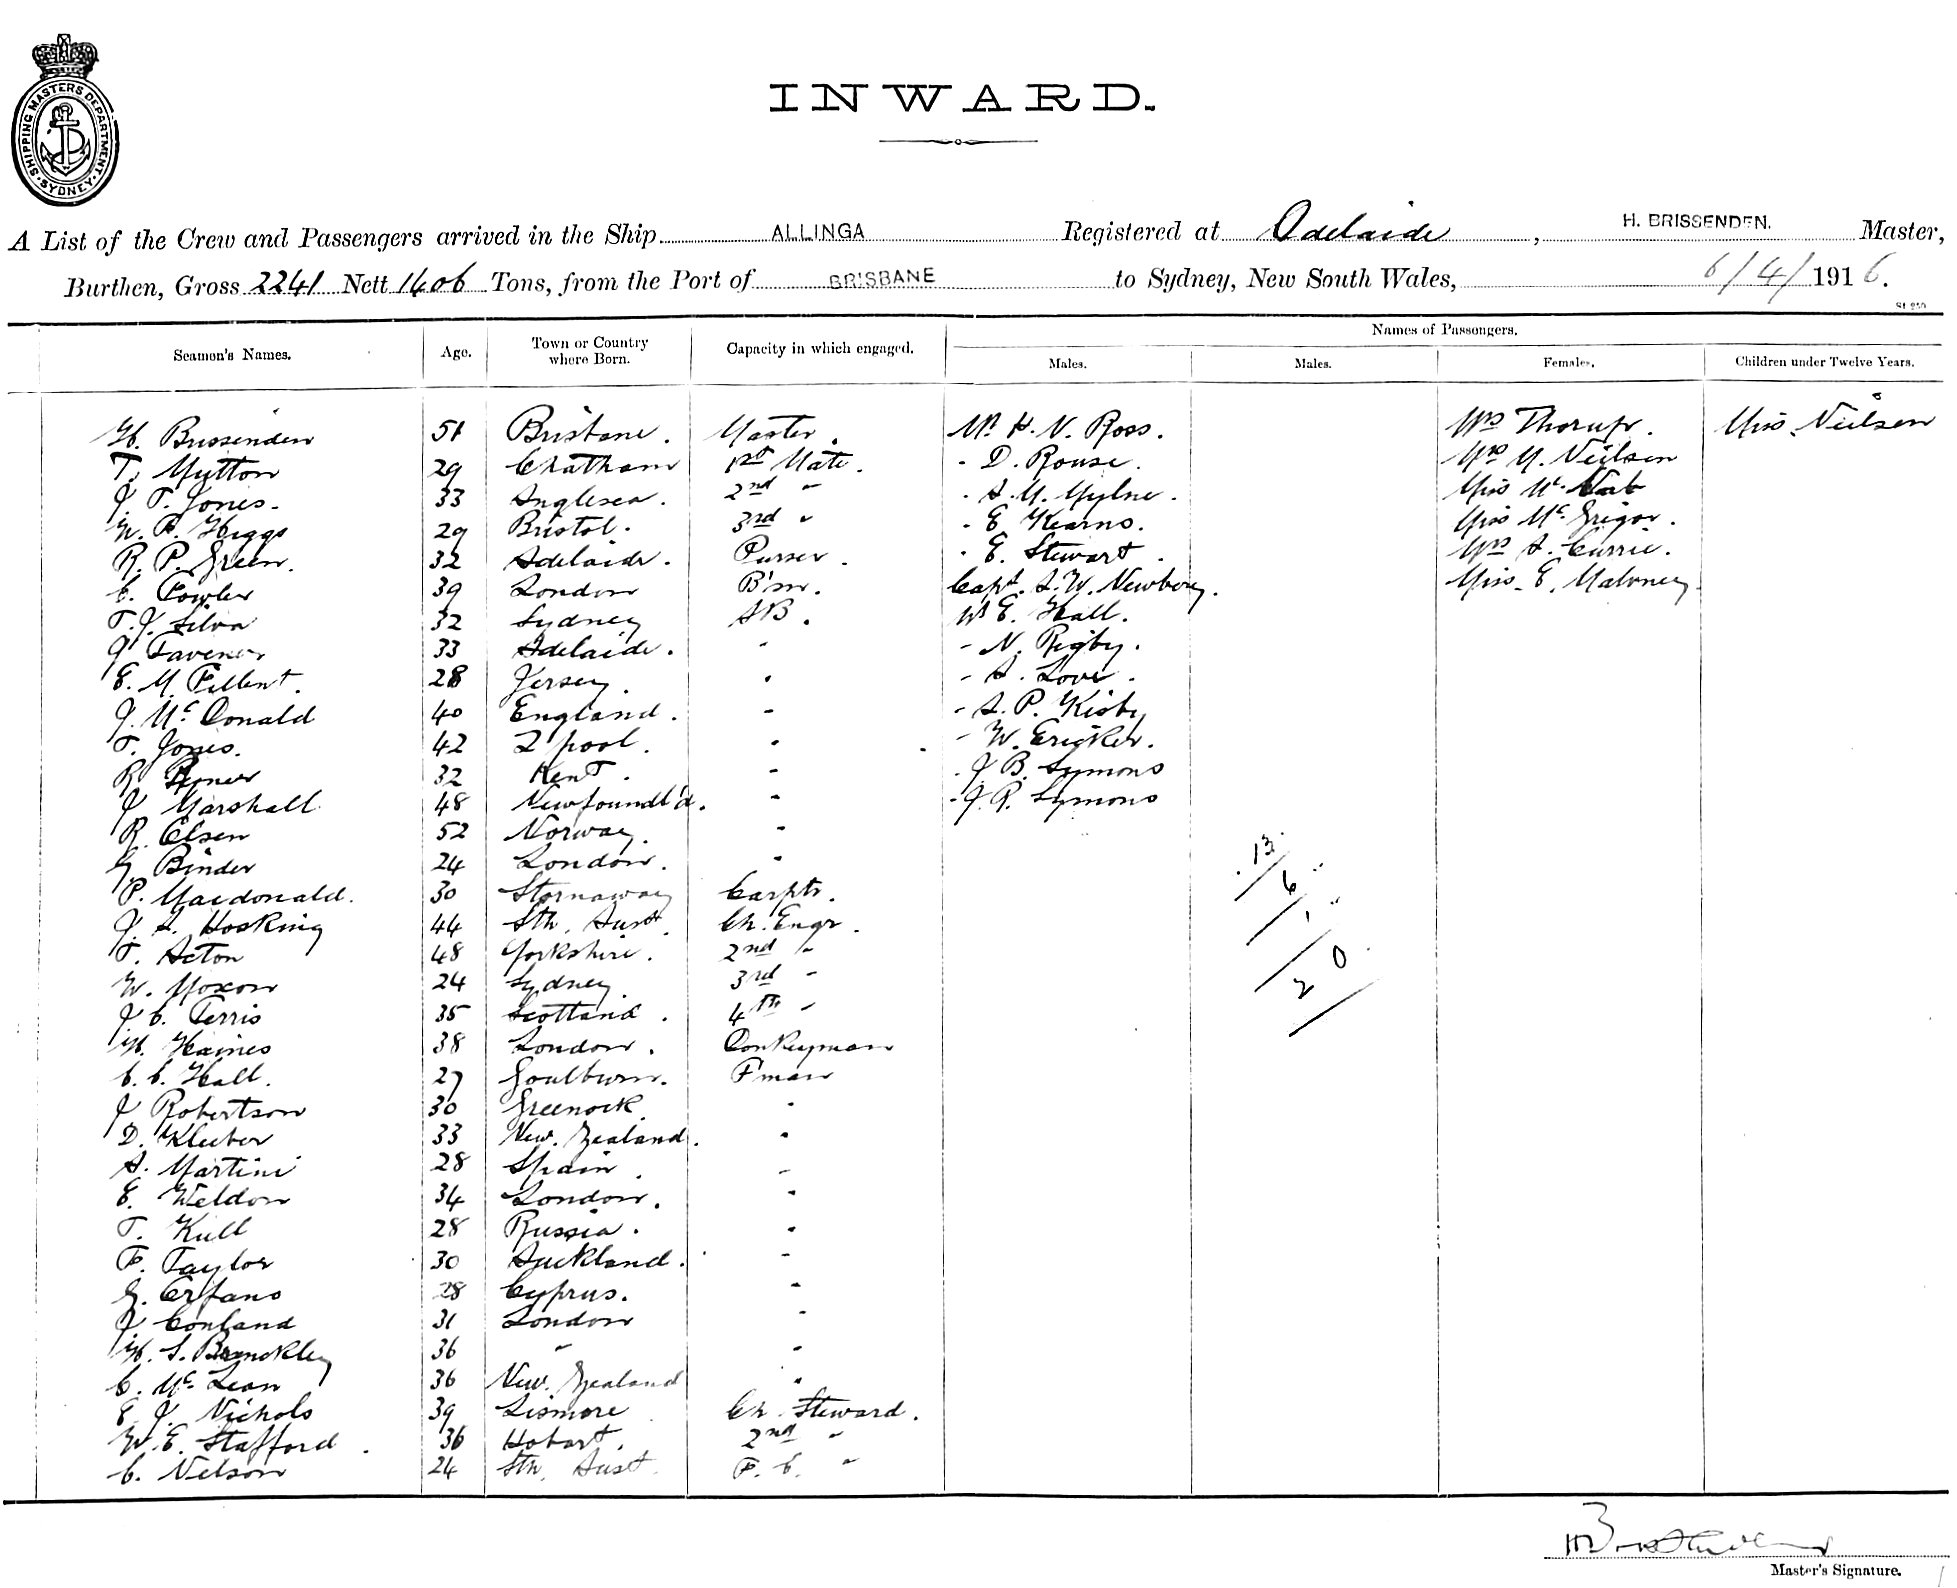 SHIPPING MASTERS DEPARTMENT. SYDNEY
INWARD.
A List of the Crew and Passengers arrived in the Ship ALLINGA Registered at Adelaide, H. BRISSENDEN. Master,
Burthen, Gross 2241 Nett 1406 Tons, from the Port of BRISBANE to Sydney, New South Wales, 6/4/1916.
Names of Passengers.
Seamen's Names. Age. Town or Country where Born. Capacity in which engaged. Males. Males. Females. Children under Twelve Years.
H. Brissenden 51 Brisbane. Master. Mr H. N. Ross. Mrs Thorup. Miss Neilsen
T. Mutton 29 Chatham 1st Mate. - D. Rouse. Mrs M. Neilsen
J. T. Jones. 33 Anglesea. 2nd " - A. M. Mylne. Miss
W. P. Higgs 29 Bristol. 3rd " - E. Kearns. Miss McGrigor.
R. P. Green. 32 Adelaide. Purser. - E. Stewart. Mrs A. Currie.
C. Fowler 39 London B'm. Capt. A. W. Newbery. Miss E. Maloney
T. J. Silva 32 Sydney AB. Mr E. Hall.
J Tavener 33 Adelaide. " - N. Rigby.
E. M. 28 Jersey. " - A. Love.
J. McDonald 40 England. " - A. P. Kisby
T. Jones. 42 L'pool. " - W. Ericker.
R 32 Kent. " - J B. Symons
J Marshall 48 Newfoundl'd. " - J. R. Symons
R. Elsen 52 Norway. "
G. Binder 24 London. " 13
P. Macdonald. 30 Stornaway Carptr. 6
J. A. Hosking 44 Sth. Aust. Ch. Engr. 1
T. Acton 48 Yorkshire. 2nd " 20
W. Moxon 24 Sydney. 3rd "
J C. Ferris 35 Scotland. 4th "
H. Haines 38 London. Donkeyman
C. C. Hall. 27 Goulburn. F'man
J Robertson 30 Greenock. "
D. Kleeber 33 New. Zealand. "
A. Martini 28 Spain. "
E. Weldon 34 London. "
T. Kull 28 Russia. "
F. Taylor 30 Auckland. "
G. Erfano 28 Cyprus. "
J Conland 31 London "
H. S. 36 " "
C. McLean 36 New. Zealand "
E J. Nichols 39 Lismore Ch. Steward.
W. E. Stafford. 36 Hobart. 2nd "
C. Nelson 24 Sth. Aust. F. C. "
Master's Signature.